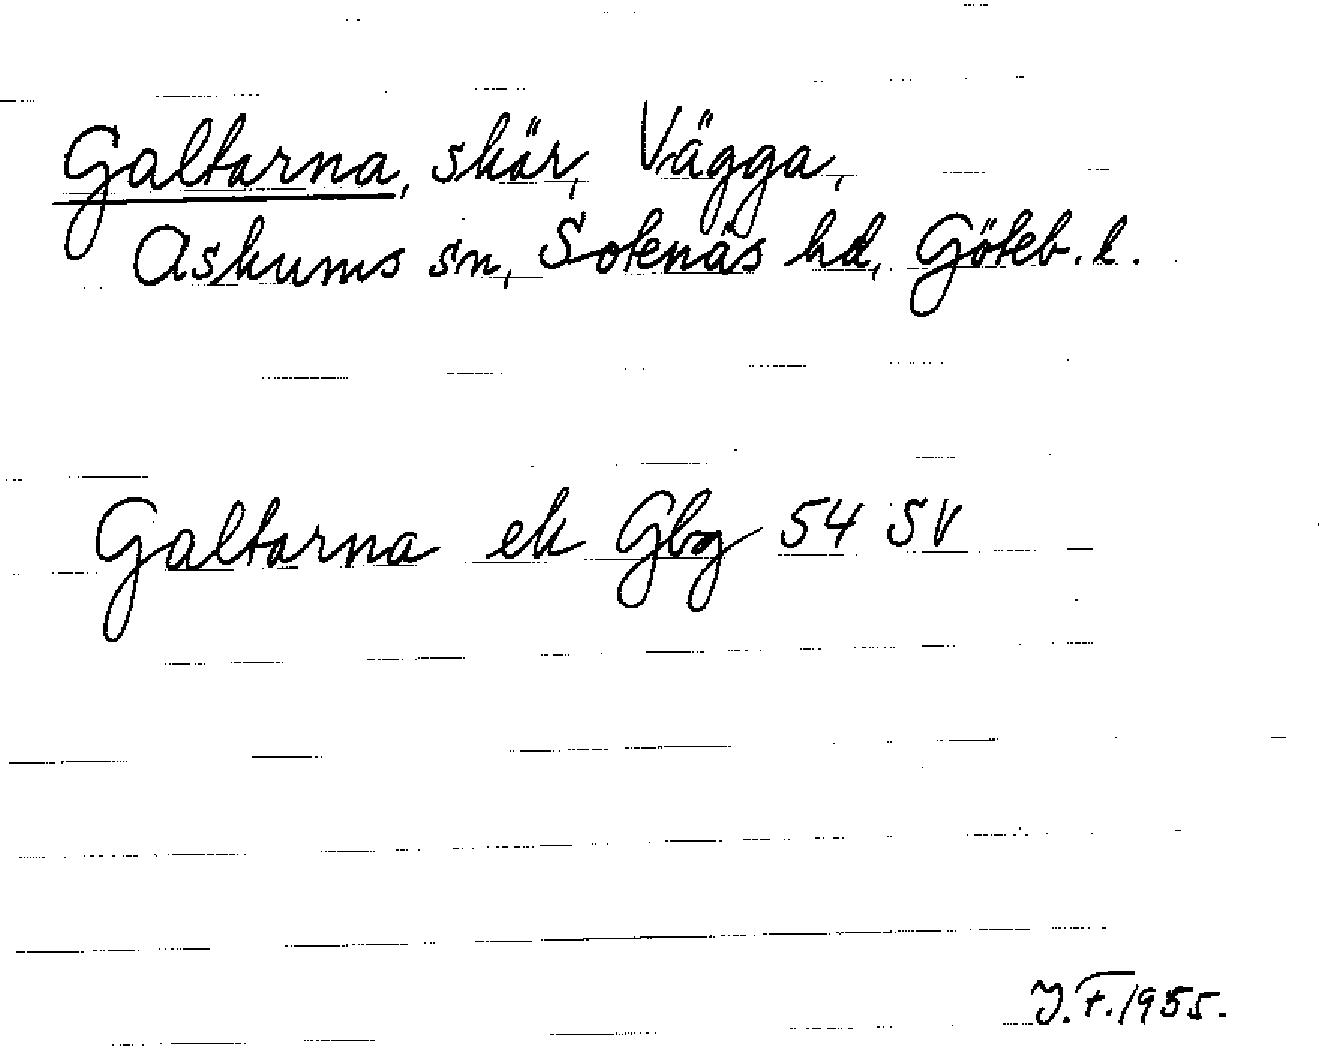 Galtarna, skär, Vägga,
Askums sn, Sotenäs hd, Göteb. l.
Galtarna ek Gbg 54 SV
J.F. 1955.